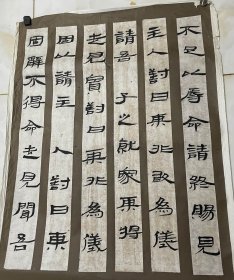 不足以辱命請終賜見
主人對曰某非敢為儀
請吾子之就家某將
走見賓對曰某非為儀
固以請主人對曰某
固辭不得命走見聞吾